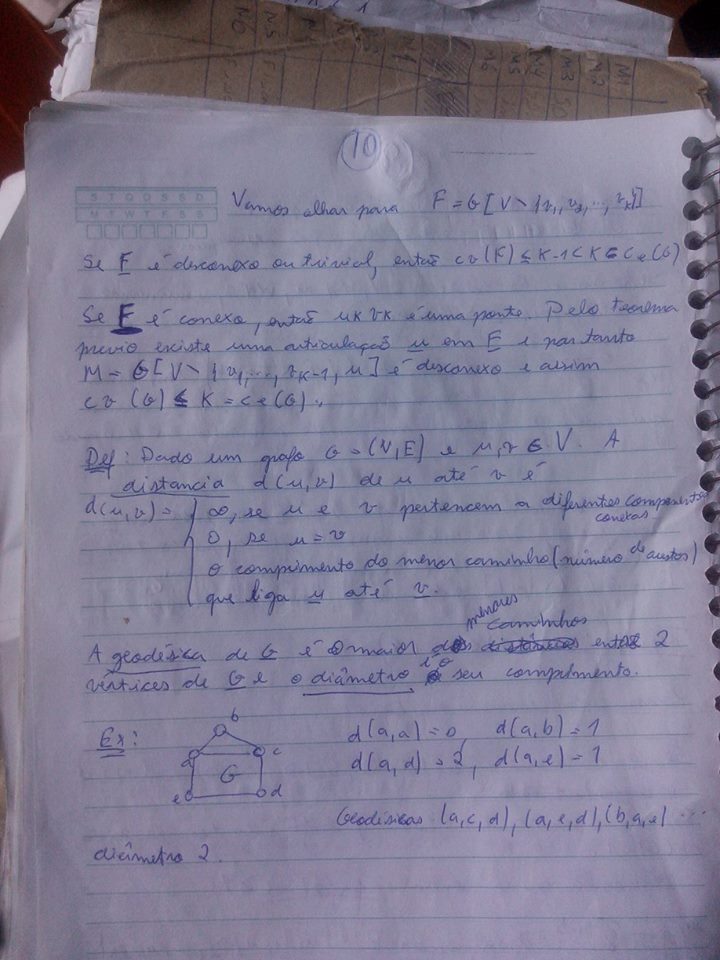 10
S T Q Q S S D
M T W T F S S
Vamos olhar para F = G[V \ {v1, v2, ..., vk}]
Se F é desconexo ou trivial, então cv(F) ≤ K-1 < K = ce(G)
Se F é conexo, então uk vk é uma ponte. Pelo teorema
previo existe uma articulação u em F e portanto
M = G[V \ {v1, ..., vk-1, u] é desconexo e assim
cv (G) ≤ K = ce(G).
Def: Dado um grafo G = (V, E) e u, v ∈ V. A
distancia d(u, v) de u até v é
d(u, v) = { ∞, se u e v pertencem a diferentes componentes conexas
0, se u = v
o comprimento do menor caminho (número de arestas)
que liga u até v.
A geodésica de G é o maior dos menores caminhos entre 2
vértices de G e o diâmetro é o seu comprimento.
Ex: b
a c
G
e d
d(a, a) = 0, d(a, b) = 1
d(a, d) = 2, d(a, e) = 1
Geodésicas (a, c, d), (a, e, d), (b, a, e) ...
diâmetro 2.